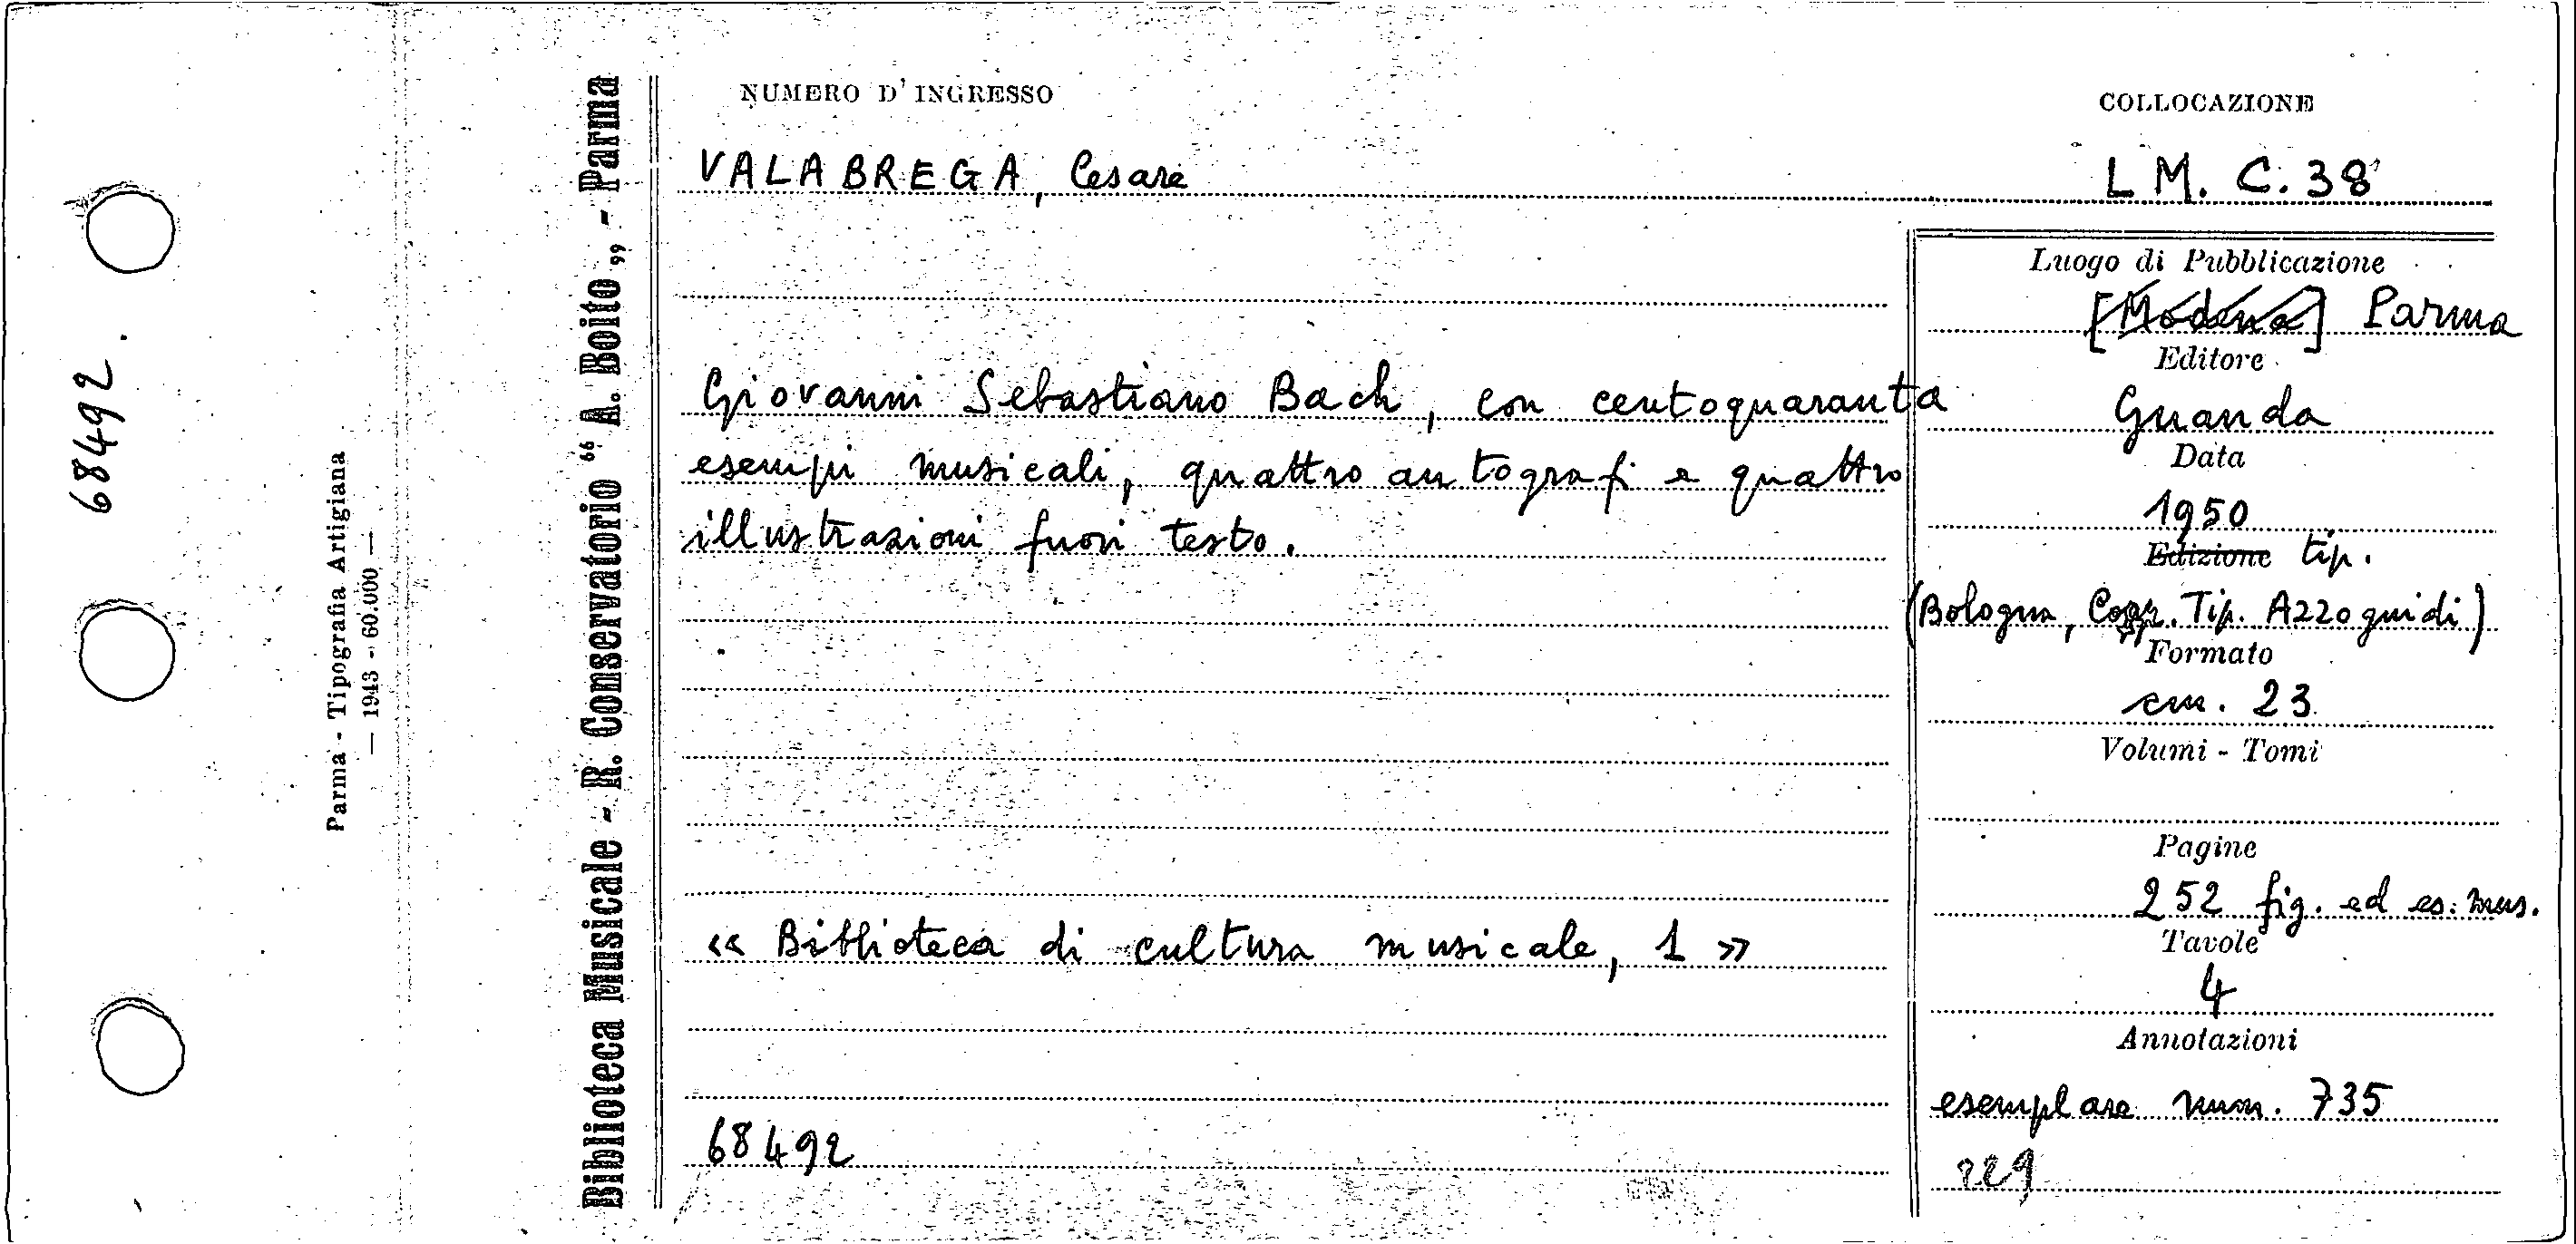 68492.
Parma - Tipografia Artigiana
— 1943 - 60.000 —
Biblioteca Musicale - R. Conservatorio “ A. Boito „ - Parma
NUMERO D'INGRESSO
COLLOCAZIONE
VALABREGA, Cesare
L M. C. 38
Giovanni Sebastiano Bach, con centoquaranta
esempi musicali, quattro autografi e quattro
illustrazioni fuori testo.
« Biblioteca di cultura musicale, 1 »
68492
Luogo di Pubblicazione
[Modena] Parma
Editore
Guanda
Data
1950
Edizione tip.
(Bologna, Tip. Azzoguidi)
Formato
cm. 23
Volumi - Tomi
Pagine
252 fig. ed es. mus.
Tavole
4
Annotazioni
esemplare num. 735